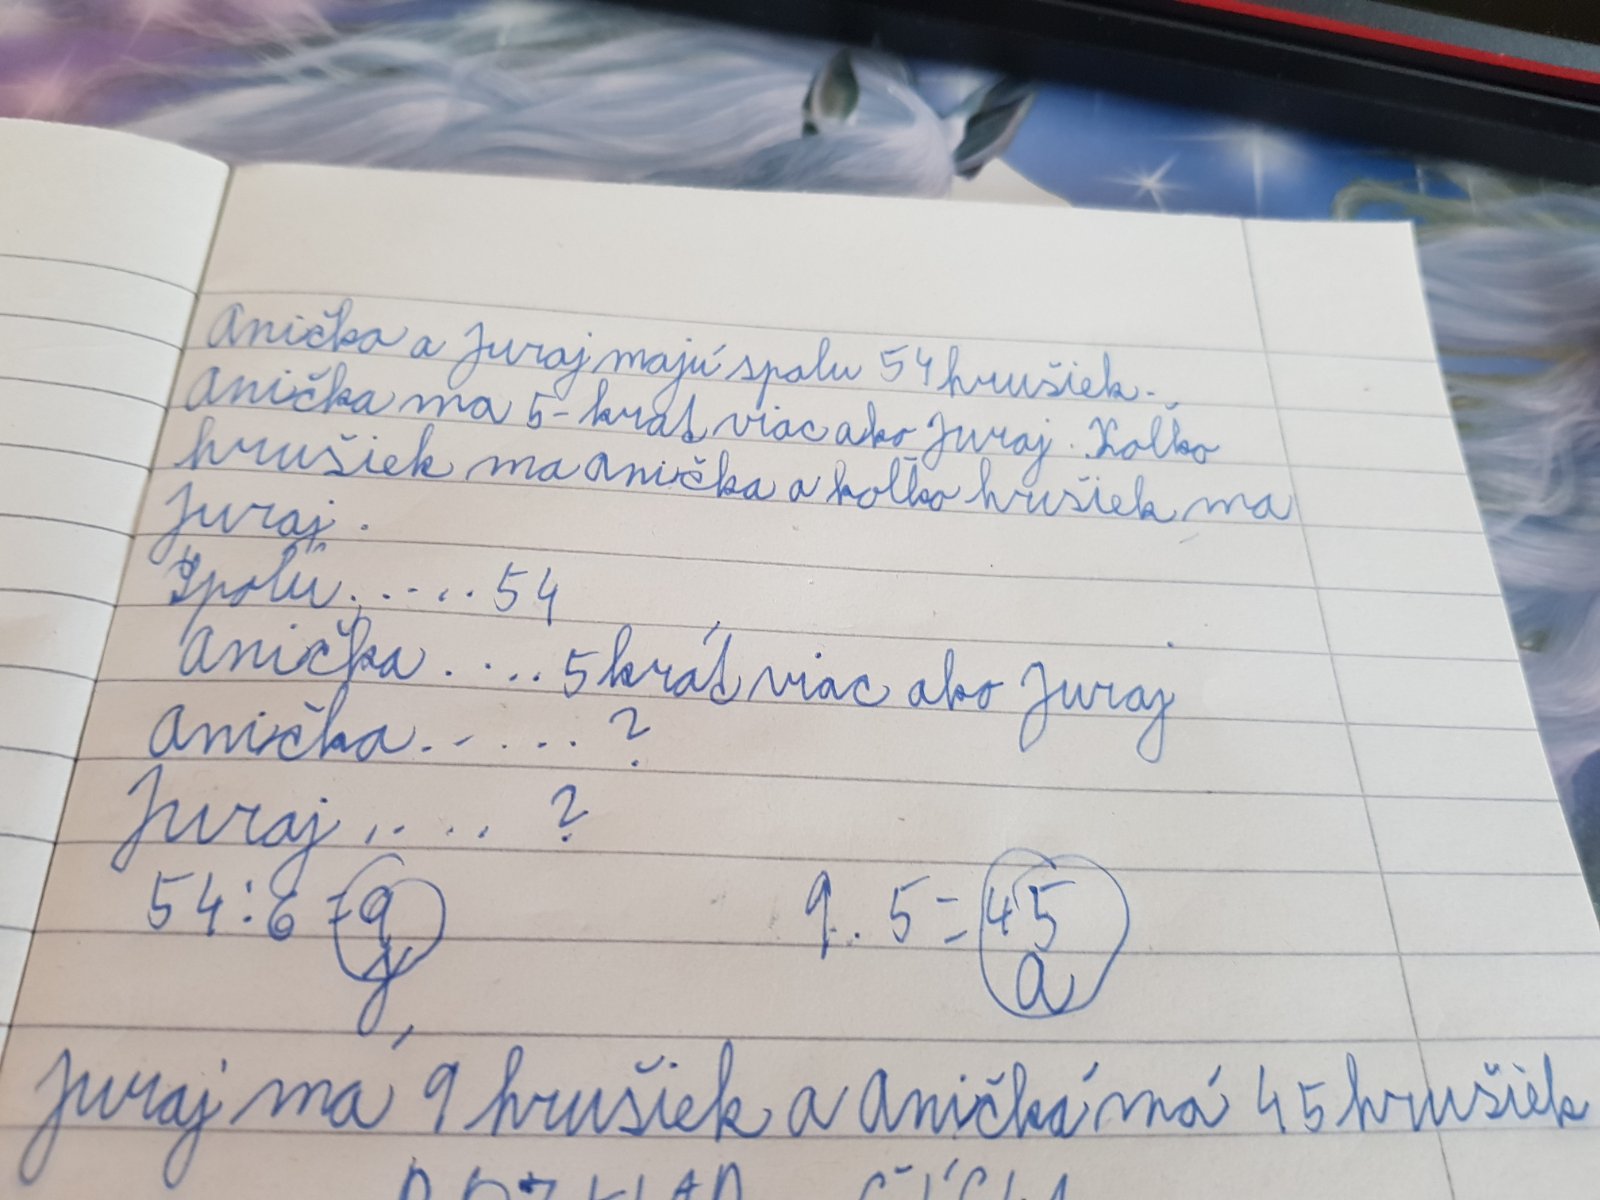 Anička a Juraj majú spolu 54 hrušiek.
Anička ma 5-krát viac ako Juraj. Koľko
hrušiek ma Anička a koľko hrušiek ma
Juraj.
Spolu......54
Anička.....5 krát viac ako Juraj
Anička......?
Juraj.....?
54:6=9 9.5=45
j a
Juraj má 9 hrušiek a Aničká má 45 hrušiek